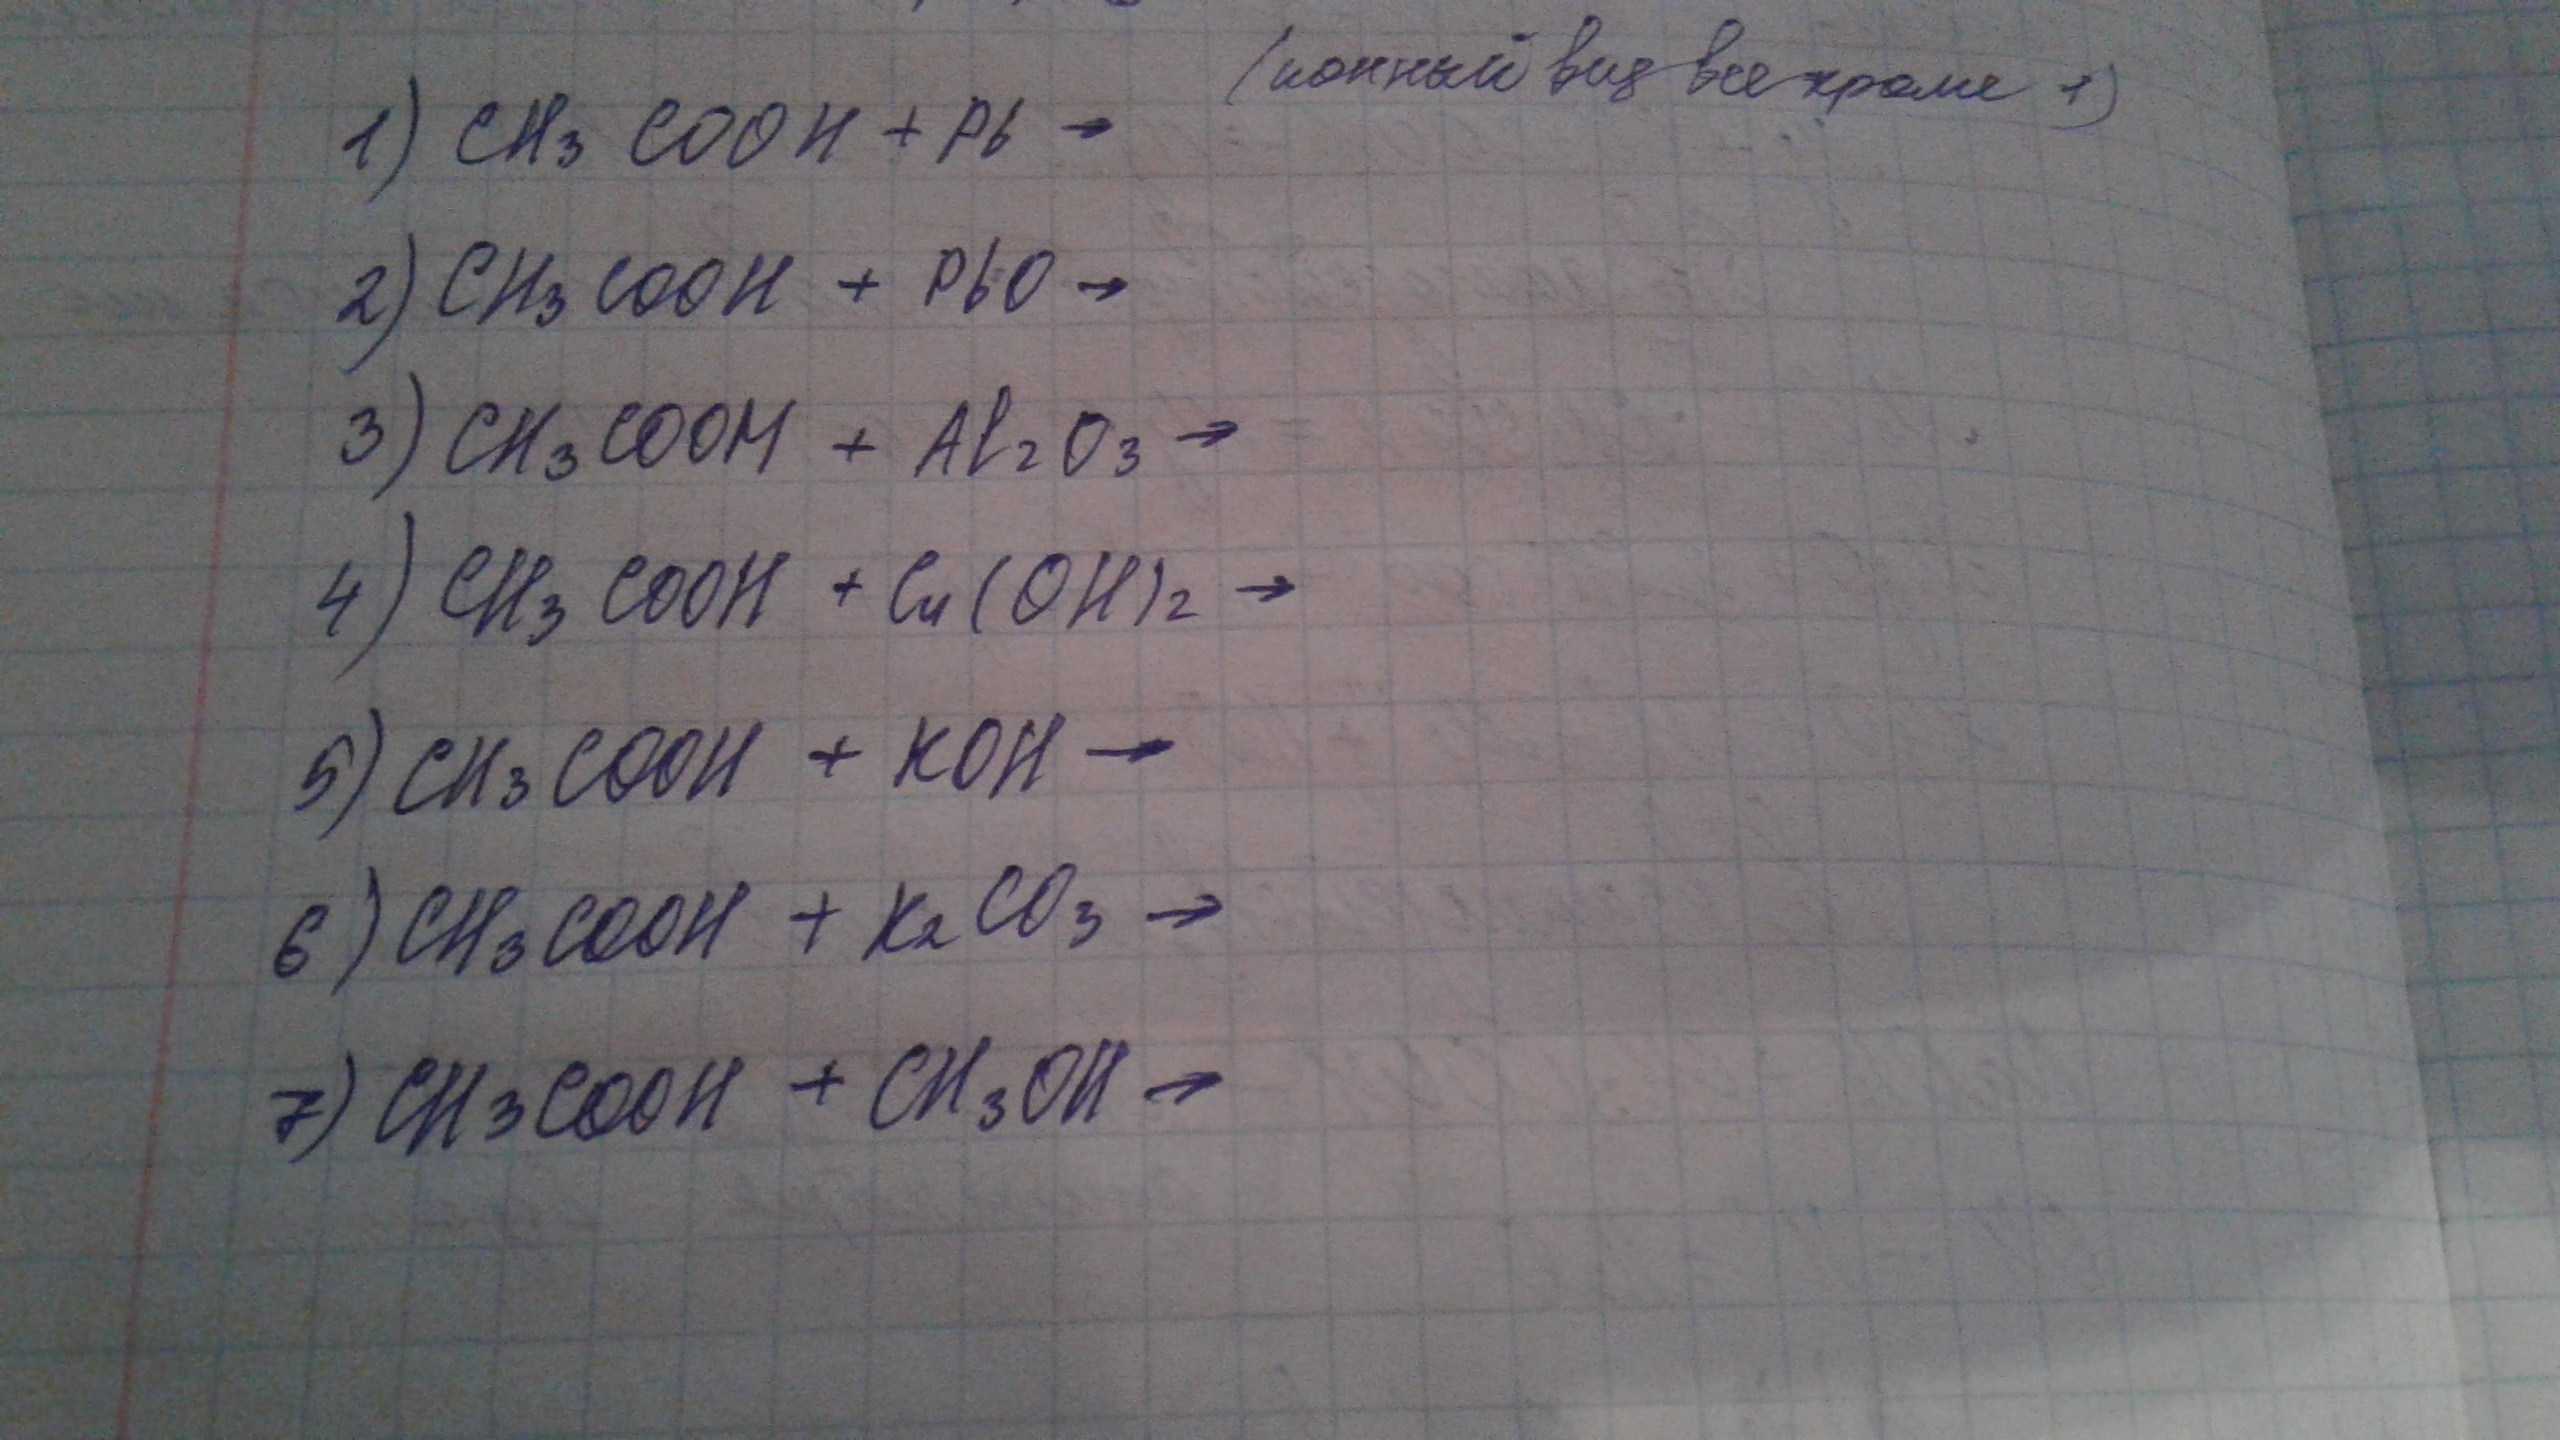 (ионный вид все кроме 1)
1) CH₃ COOH + Pb →
2) CH₃COOH + PbO →
3) CH₃COOH + Al₂O₃ →
4) CH₃ COOH + Cu(OH)₂ →
5) CH₃COOH + KOH →
6) CH₃COOH + K₂CO₃ →
7) CH₃COOH + CH₃OH →